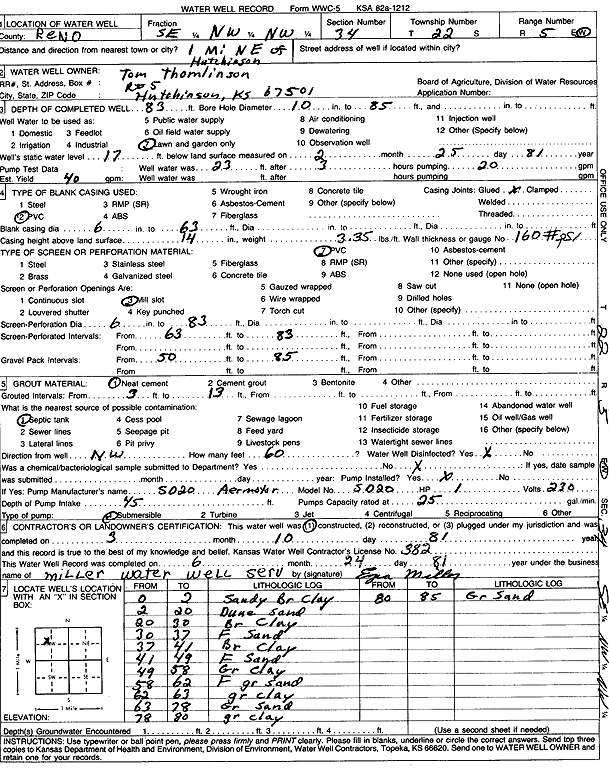 WATER WELL RECORD Form WWC-5 KSA 82a-1212
1 LOCATION OF WATER WELL Fraction Section Number Township Number Range Number
County: Reno SE 1/4 NW 1/4 NW 1/4 34 T 22 S R 5 E/W
Distance and direction from nearest town or city? 1 Mi NE of Hutchinson Street address of well if located within city?
2 WATER WELL OWNER: Tom Thomlinson
RR#, St. Address, Box # : Rt 5 Board of Agriculture, Division of Water Resources
City, State, ZIP Code : Hutchinson, KS 67501 Application Number:
3 DEPTH OF COMPLETED WELL 83 ft. Bore Hole Diameter 10 in. to 85 ft., and in. to ft.
Well Water to be used as: 5 Public water supply 8 Air conditioning 11 Injection well
1 Domestic 3 Feedlot 6 Oil field water supply 9 Dewatering 12 Other (Specify below)
2 Irrigation 4 Industrial 7 Lawn and garden only 10 Observation well
Well's static water level 17 ft. below land surface measured on 2 month 25 day 81 year
Pump Test Data : Well water was 23 ft. after 3 hours pumping 20 gpm
Est. Yield 40 gpm: Well water was ft. after hours pumping gpm
4 TYPE OF BLANK CASING USED: 5 Wrought iron 8 Concrete tile Casing Joints: Glued X Clamped
1 Steel 3 RMP (SR) 6 Asbestos-Cement 9 Other (specify below) Welded
2 PVC 4 ABS 7 Fiberglass Threaded.
Blank casing dia 6 in. to 63 ft., Dia in. to ft., Dia in. to ft.
Casing height above land surface 14 in., weight 3.35 lbs./ft. Wall thickness or gauge No 160 # psi
TYPE OF SCREEN OR PERFORATION MATERIAL: 7 PVC 10 Asbestos-cement
1 Steel 3 Stainless steel 5 Fiberglass 8 RMP (SR) 11 Other (specify)
2 Brass 4 Galvanized steel 6 Concrete tile 9 ABS 12 None used (open hole)
Screen or Perforation Openings Are: 5 Gauzed wrapped 8 Saw cut 11 None (open hole)
1 Continuous slot 3 Mill slot 6 Wire wrapped 9 Drilled holes
2 Louvered shutter 4 Key punched 7 Torch cut 10 Other (specify)
Screen-Perforation Dia 6 in. to 83 ft., Dia in. to ft., Dia in. to ft.
Screen-Perforated Intervals: From 63 ft. to 83 ft., From ft. to ft.
From ft. to ft., From ft. to ft.
Gravel Pack Intervals: From 50 ft. to 85 ft., From ft. to ft.
From ft. to ft., From ft. to ft.
5 GROUT MATERIAL: 1 Neat cement 2 Cement grout 3 Bentonite 4 Other
Grouted Intervals: From 3 ft. to 13 ft., From ft. to ft., From ft. to ft.
What is the nearest source of possible contamination: 10 Fuel storage 14 Abandoned water well
1 Septic tank 4 Cess pool 7 Sewage lagoon 11 Fertilizer storage 15 Oil well/Gas well
2 Sewer lines 5 Seepage pit 8 Feed yard 12 Insecticide storage 16 Other (specify below)
3 Lateral lines 6 Pit privy 9 Livestock pens 13 Watertight sewer lines
Direction from well N.W. How many feet 60 ? Water Well Disinfected? Yes X No
Was a chemical/bacteriological sample submitted to Department? Yes No X : If yes, date sample
was submitted month day year: Pump Installed? Yes X No
If Yes: Pump Manufacturer's name 5020 Aermotor Model No. 5020 HP 1 Volts 230
Depth of Pump Intake 45 ft. Pumps Capacity rated at 25 gal./min.
Type of pump: 1 Submersible 2 Turbine 3 Jet 4 Centrifugal 5 Reciprocating 6 Other
6 CONTRACTOR'S OR LANDOWNER'S CERTIFICATION: This water well was (1) constructed, (2) reconstructed, or (3) plugged under my jurisdiction and was
completed on 3 month 10 day 81 year
and this record is true to the best of my knowledge and belief. Kansas Water Well Contractor's License No. 382
This Water Well Record was completed on 6 month 24 day 81 year under the business
name of Miller Water Well Serv by (signature) Miller
7 LOCATE WELL'S LOCATION WITH AN "X" IN SECTION BOX: FROM TO LITHOLOGIC LOG FROM TO LITHOLOGIC LOG
0 2 Sandy Br Clay 80 85 Gr Sand
2 20 Dune Sand
20 30 Br Clay
30 37 F Sand
37 41 Br Clay
41 49 F Sand
49 58 Gr Clay
58 62 F gr sand
62 63 gr clay
63 78 Gr Sand
78 80 gr clay
N
NW NE
W E
SW SE
S
1 Mile
1 Mile
ELEVATION:
Depth(s) Groundwater Encountered 1. ft. 2. ft. 3. ft. 4. ft. (Use a second sheet if needed)
INSTRUCTIONS: Use typewriter or ball point pen, please press firmly and PRINT clearly. Please fill in blanks, underline or circle the correct answers. Send top three
copies to Kansas Department of Health and Environment, Division of Environment, Water Well Contractors, Topeka, KS 66620. Send one to WATER WELL OWNER and
retain one for your records.
OFFICE USE ONLY
T 22
R 5
E/W
SEC. 34
SE 1/4 NW 1/4 NW 1/4